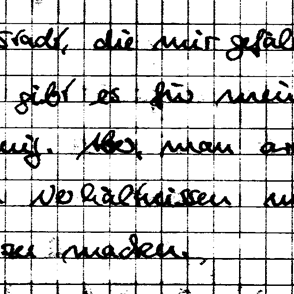 sradt, die mir gefäl
gibt es für mein
nig. Aber, man ar
n Verhältnissen
zu machen.